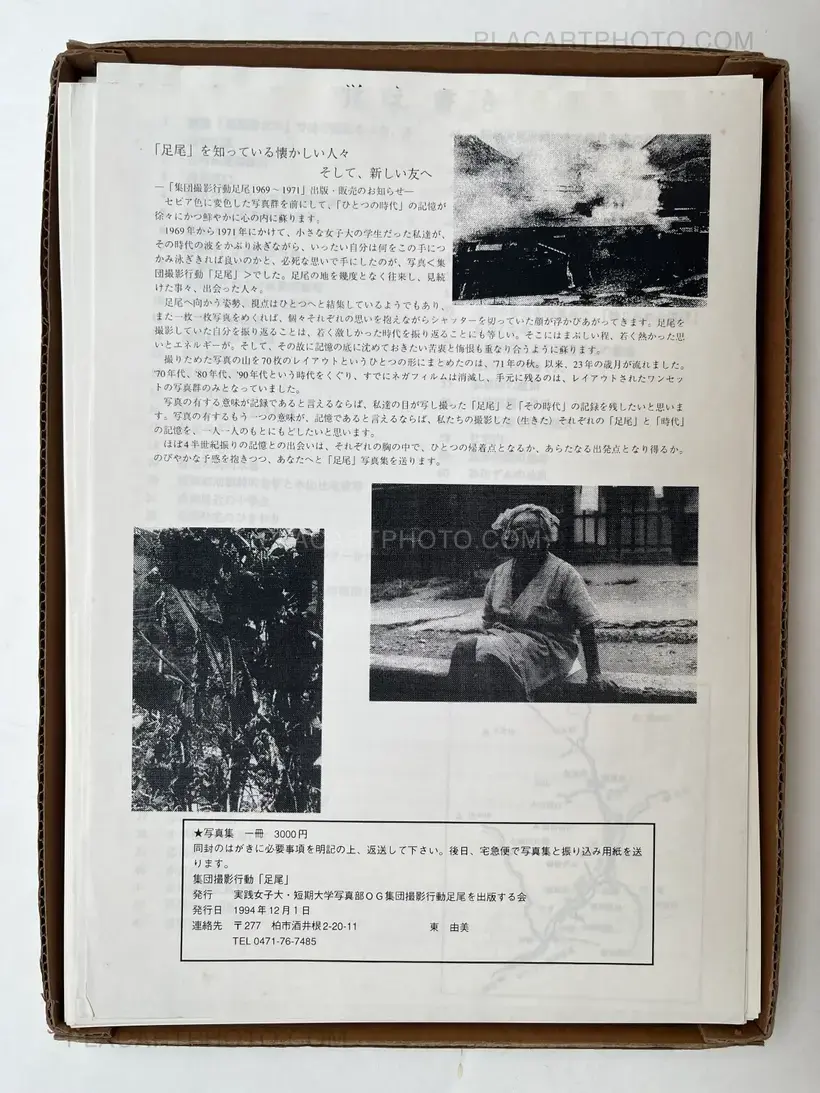 PLACARTPHOTO.COM
「足尾」を知っている懐かしい人々
そして、新しい友へ
―「集団撮影行動足尾1969～1971」出版・販売のお知らせ―
セピア色に変色した写真群を前にして、「ひとつの時代」の記憶が
徐々にかつ鮮やかに心の内に蘇ります。
1969年から1971年にかけて、小さな女子大の学生だった私達が、
その時代の波をかぶり泳ぎながら、いったい自分は何をこの手につ
かみ泳ぎきれば良いのかと、必死な思いで手にしたのが、写真＜集
団撮影行動「足尾」＞でした。足尾の地を幾度となく往来し、見続
けた事々、出会った人々。
足尾へ向かう姿勢、視点はひとつへと結集しているようでもあり、
また一枚一枚写真をめくれば、個々それぞれの思いを抱えながらシャッターを切っていた顔が浮かびあがってきます。足尾を
撮影していた自分を振り返ることは、若く激しかった時代を振り返ることにも等しい。そこにはまぶしい程、若く熱かった思
いとエネルギーが、そして、その故に記憶の底に沈めておきたい苦衷と悔恨も重なり合うように蘇ります。
撮りためた写真の山を70枚のレイアウトというひとつの形にまとめたのは、'71年の秋。以来、23年の歳月が流れました。
'70年代、'80年代、'90年代という時代をくぐり、すでにネガフィルムは消滅し、手元に残るのは、レイアウトされたワンセッ
トの写真群のみとなっていました。
写真の有する意味が記録であると言えるならば、私達の目が写し撮った「足尾」と「その時代」の記録を残したいと思いま
す。写真の有するもう一つの意味が、記憶であると言えるならば、私たちの撮影した（生きた）それぞれの「足尾」と「時代」
の記憶を、一人一人のもとにもどしたいと思います。
ほぼ4半世紀振りの記憶との出会いは、それぞれの胸の中で、ひとつの帰着点となるか、あらたなる出発点となり得るか。
のびやかな予感を抱きつつ、あなたへと「足尾」写真集を送ります。
PLACARTPHOTO.COM
★写真集　一冊　3000円
同封のはがきに必要事項を明記の上、返送して下さい。後日、宅急便で写真集と振り込み用紙を送
ります。
集団撮影行動「足尾」
発行　実践女子大・短期大学写真部OG集団撮影行動足尾を出版する会
発行日　1994年12月1日
連絡先　〒277　柏市酒井根2-20-11　東　由美
TEL 0471-76-7485
PLACARTPHOTO.COM